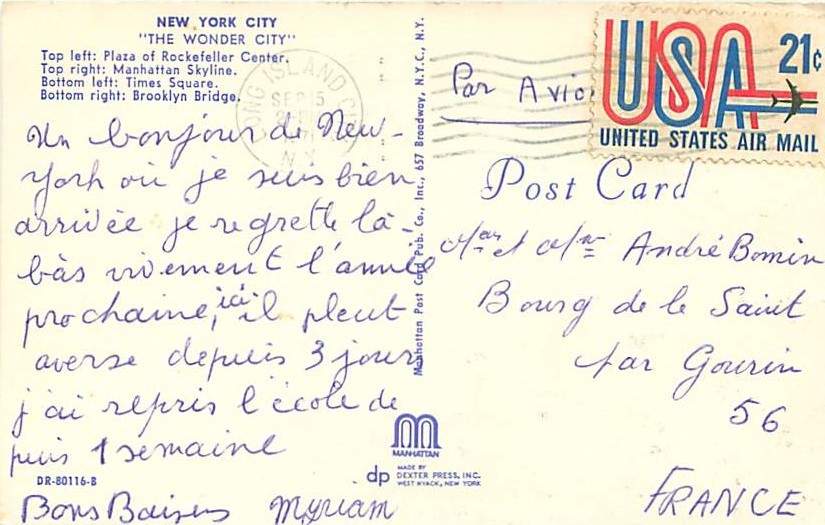 NEW YORK CITY
"THE WONDER CITY"
Top left: Plaza of Rockefeller Center.
Top right: Manhattan Skyline.
Bottom left: Times Square.
Bottom right: Brooklyn Bridge.
Un bonjour de New-
York où je suis bien
arrivée je regrette là-
bàs vivement l'année
prochaine, ici il pleut
averse depuis 3 jours
j'ai repris l'école de
puis 1 semaine
Bons Baisers Myriam
DR-80116-B
LONG ISLAND
SEP 15
N.Y.
Manhattan Post Card Pub. Co., Inc., 657 Broadway, N.Y.C., N.Y.
MANHATTAN
dp MADE BY
DEXTER PRESS, INC.
WEST NYACK, NEW YORK
Par Avion
USA 21c
UNITED STATES AIR MAIL
Post Card
et André Bomin
Bourg de le Saint
par Gourin
56
FRANCE